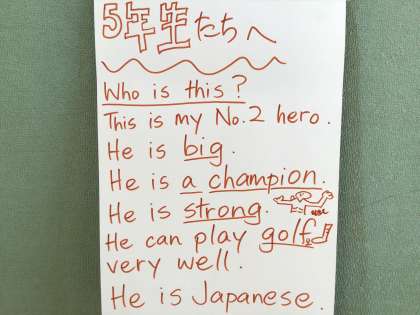 5年生たちへ
Who is this?
This is my No.2 hero.
He is big.
He is a champion.
He is strong.
He can play golf
very well.
He is Japanese.